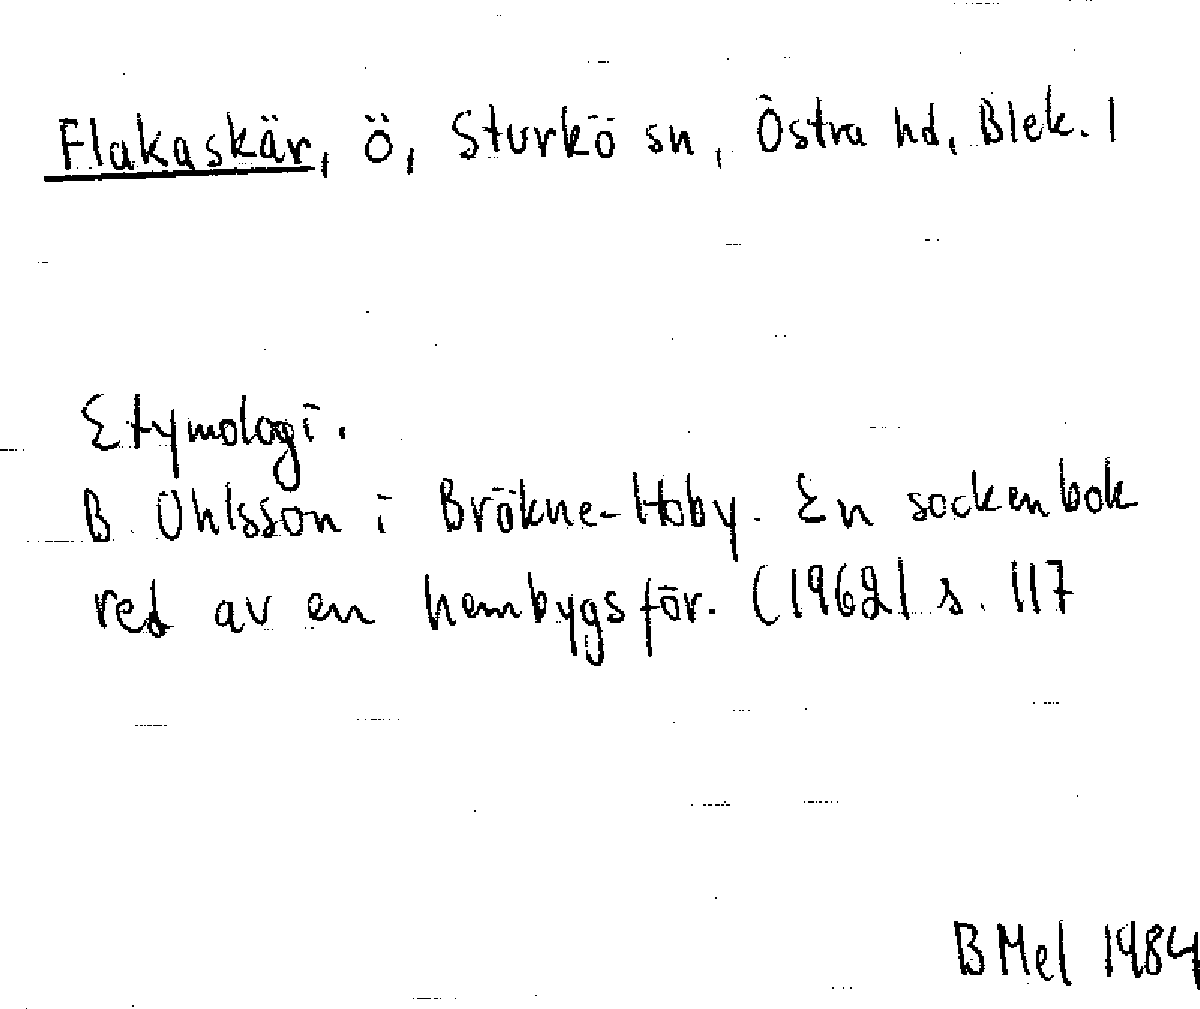 Flakaskär, ö, Sturkö sn, Östra hd, Blek. l
Etymologi.
B. Ohlsson i Bräkne-Hoby. En sockenbok
red av en hembygsför. (1962) s. 117
B Mel 1984